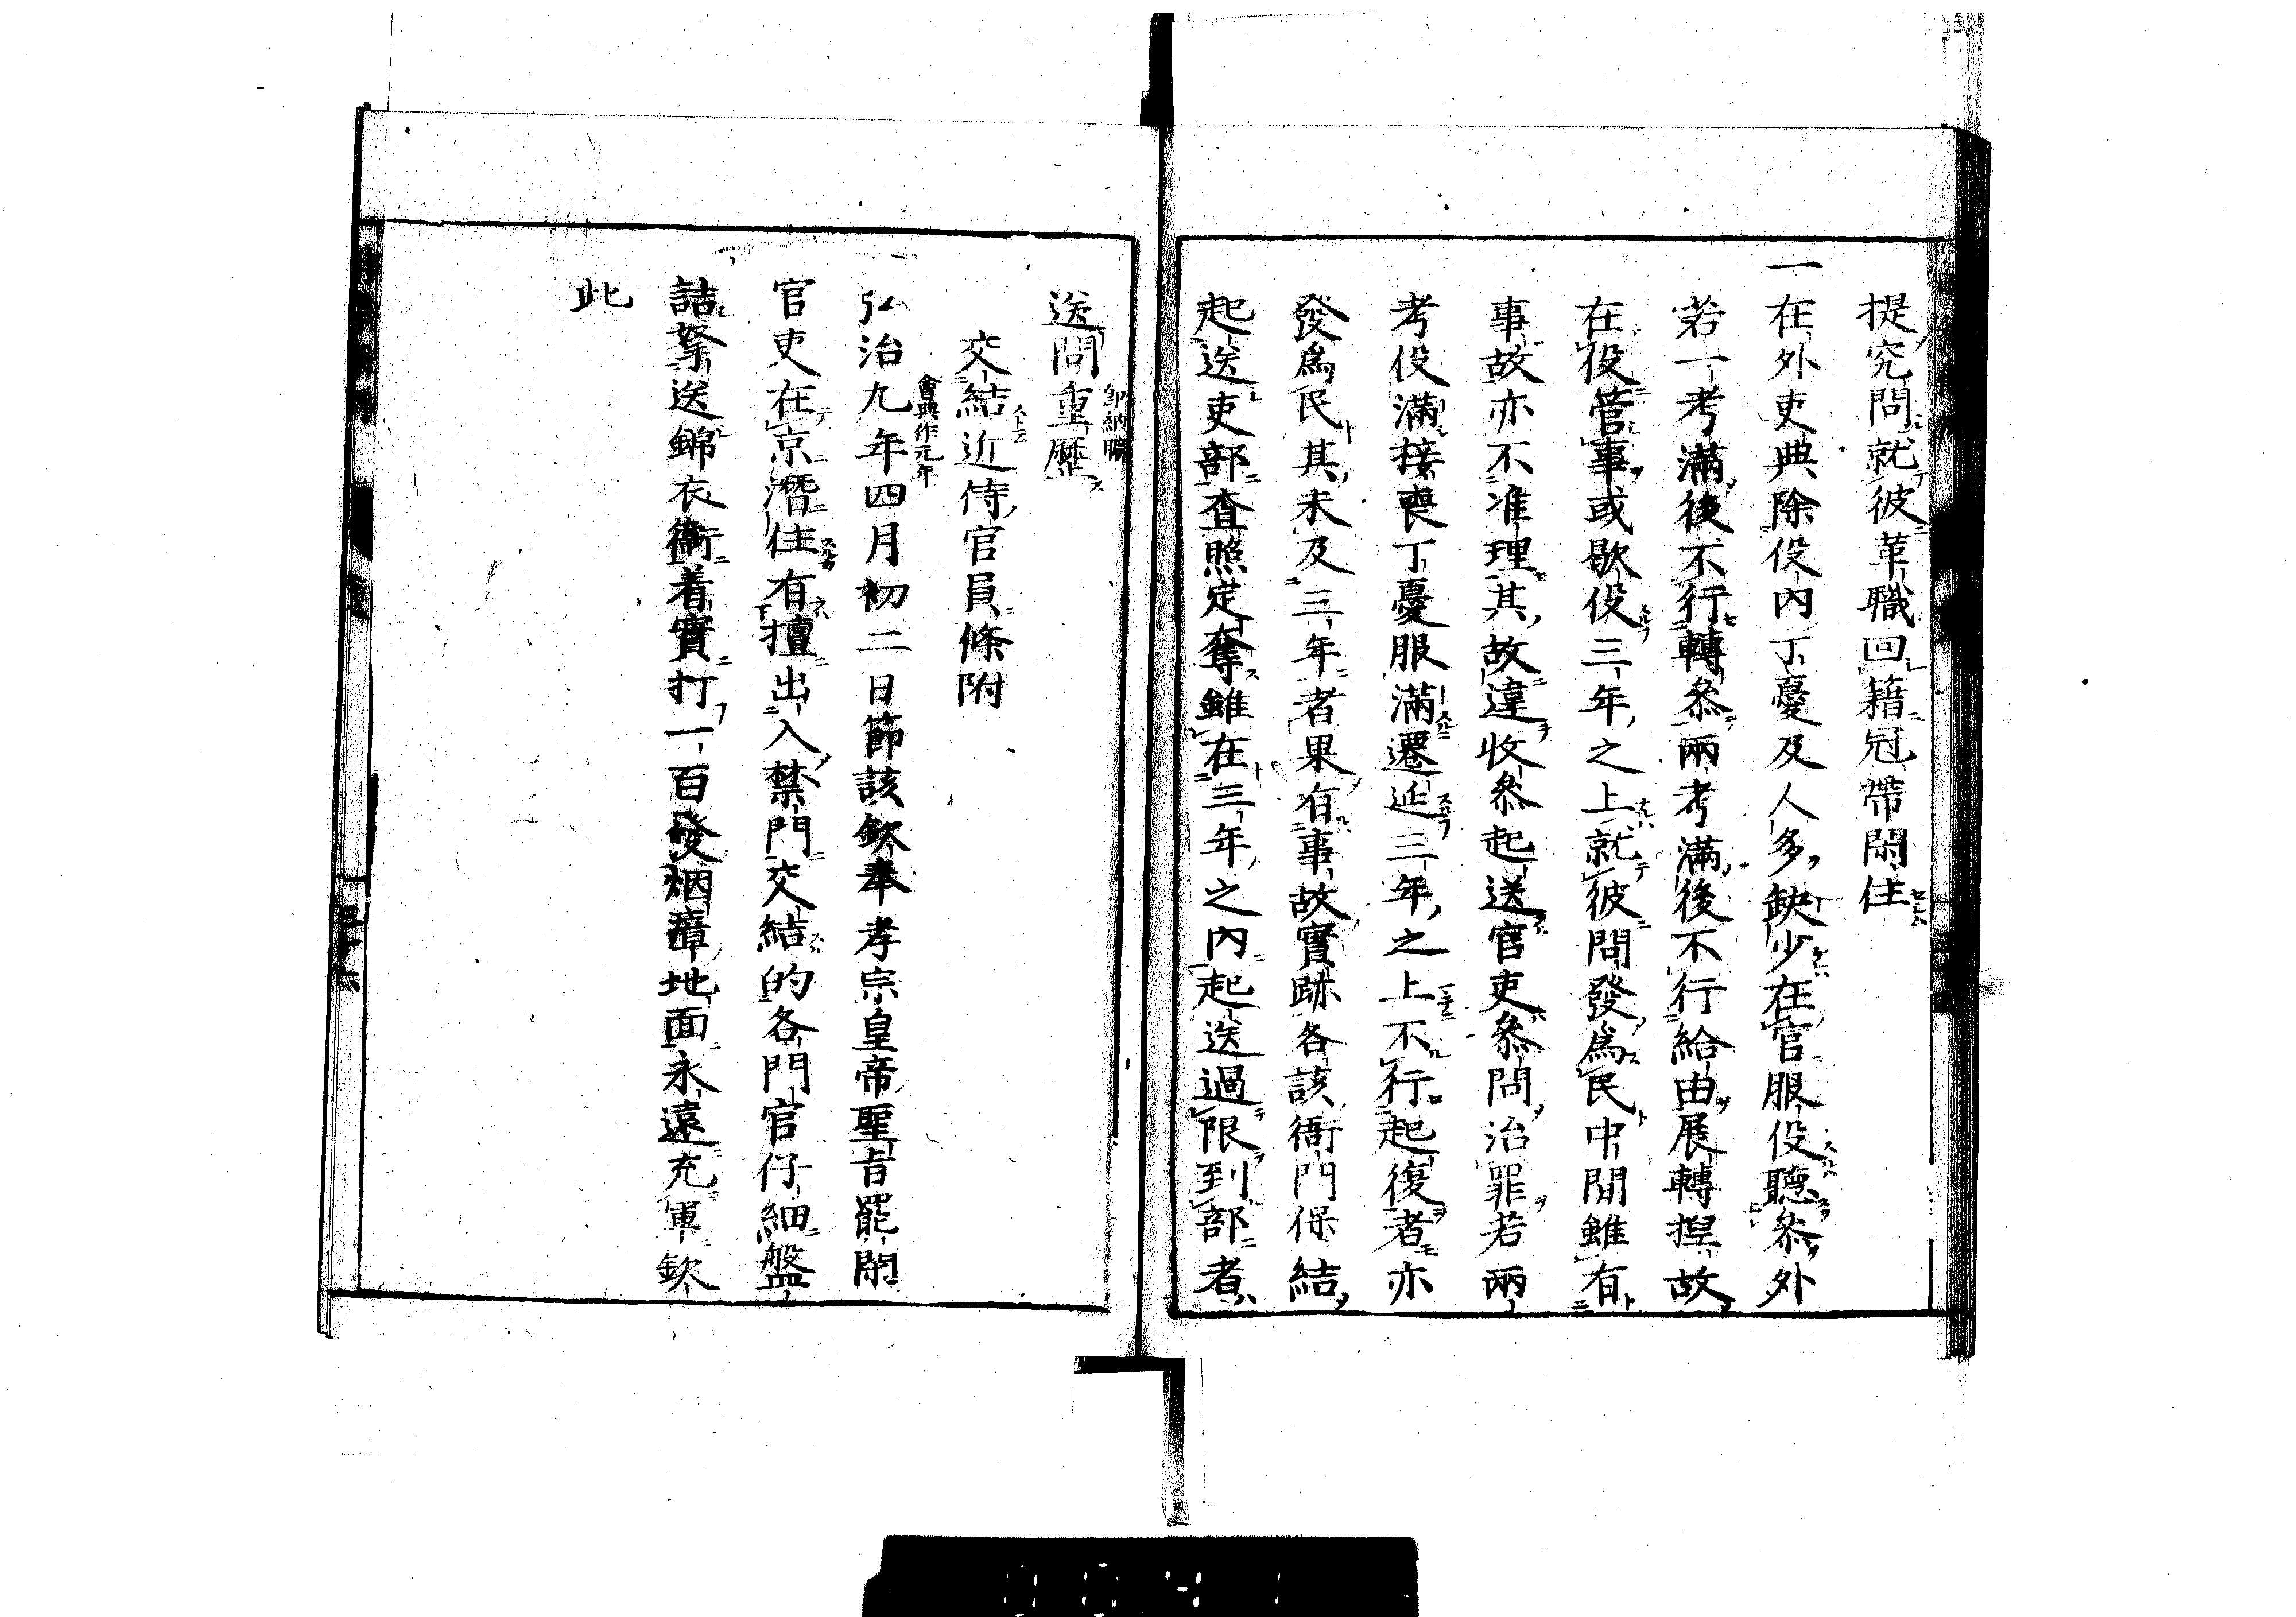 提究問就彼革職回籍冠帶閑住
一在外吏典除役内丁憂及人多缺少在官服役聽叅外
若一考滿後不行轉叅兩考滿後不行給由展轉捏故
在役管事或歇役三年之上就彼問發爲民中間雖有
事故亦不准理其故違收叅起送官吏叅問治罪若兩
考役滿接喪丁憂服滿遷延三年之上不行起復者亦
發爲民其未及三年者果有事故實跡各該衙門保結
起送吏部査照定奪雖在三年之内起送過限到部者
送問重歷
交結近侍官員條附
會典作元年
弘治九年四月初二日節該欽奉孝宗皇帝聖旨罷閑
官吏在京潛住有擅出入禁門交結的各門官仔細盤
詰拏送錦衣衞着實打一百發烟瘴地面永遠充軍欽
此
三十六